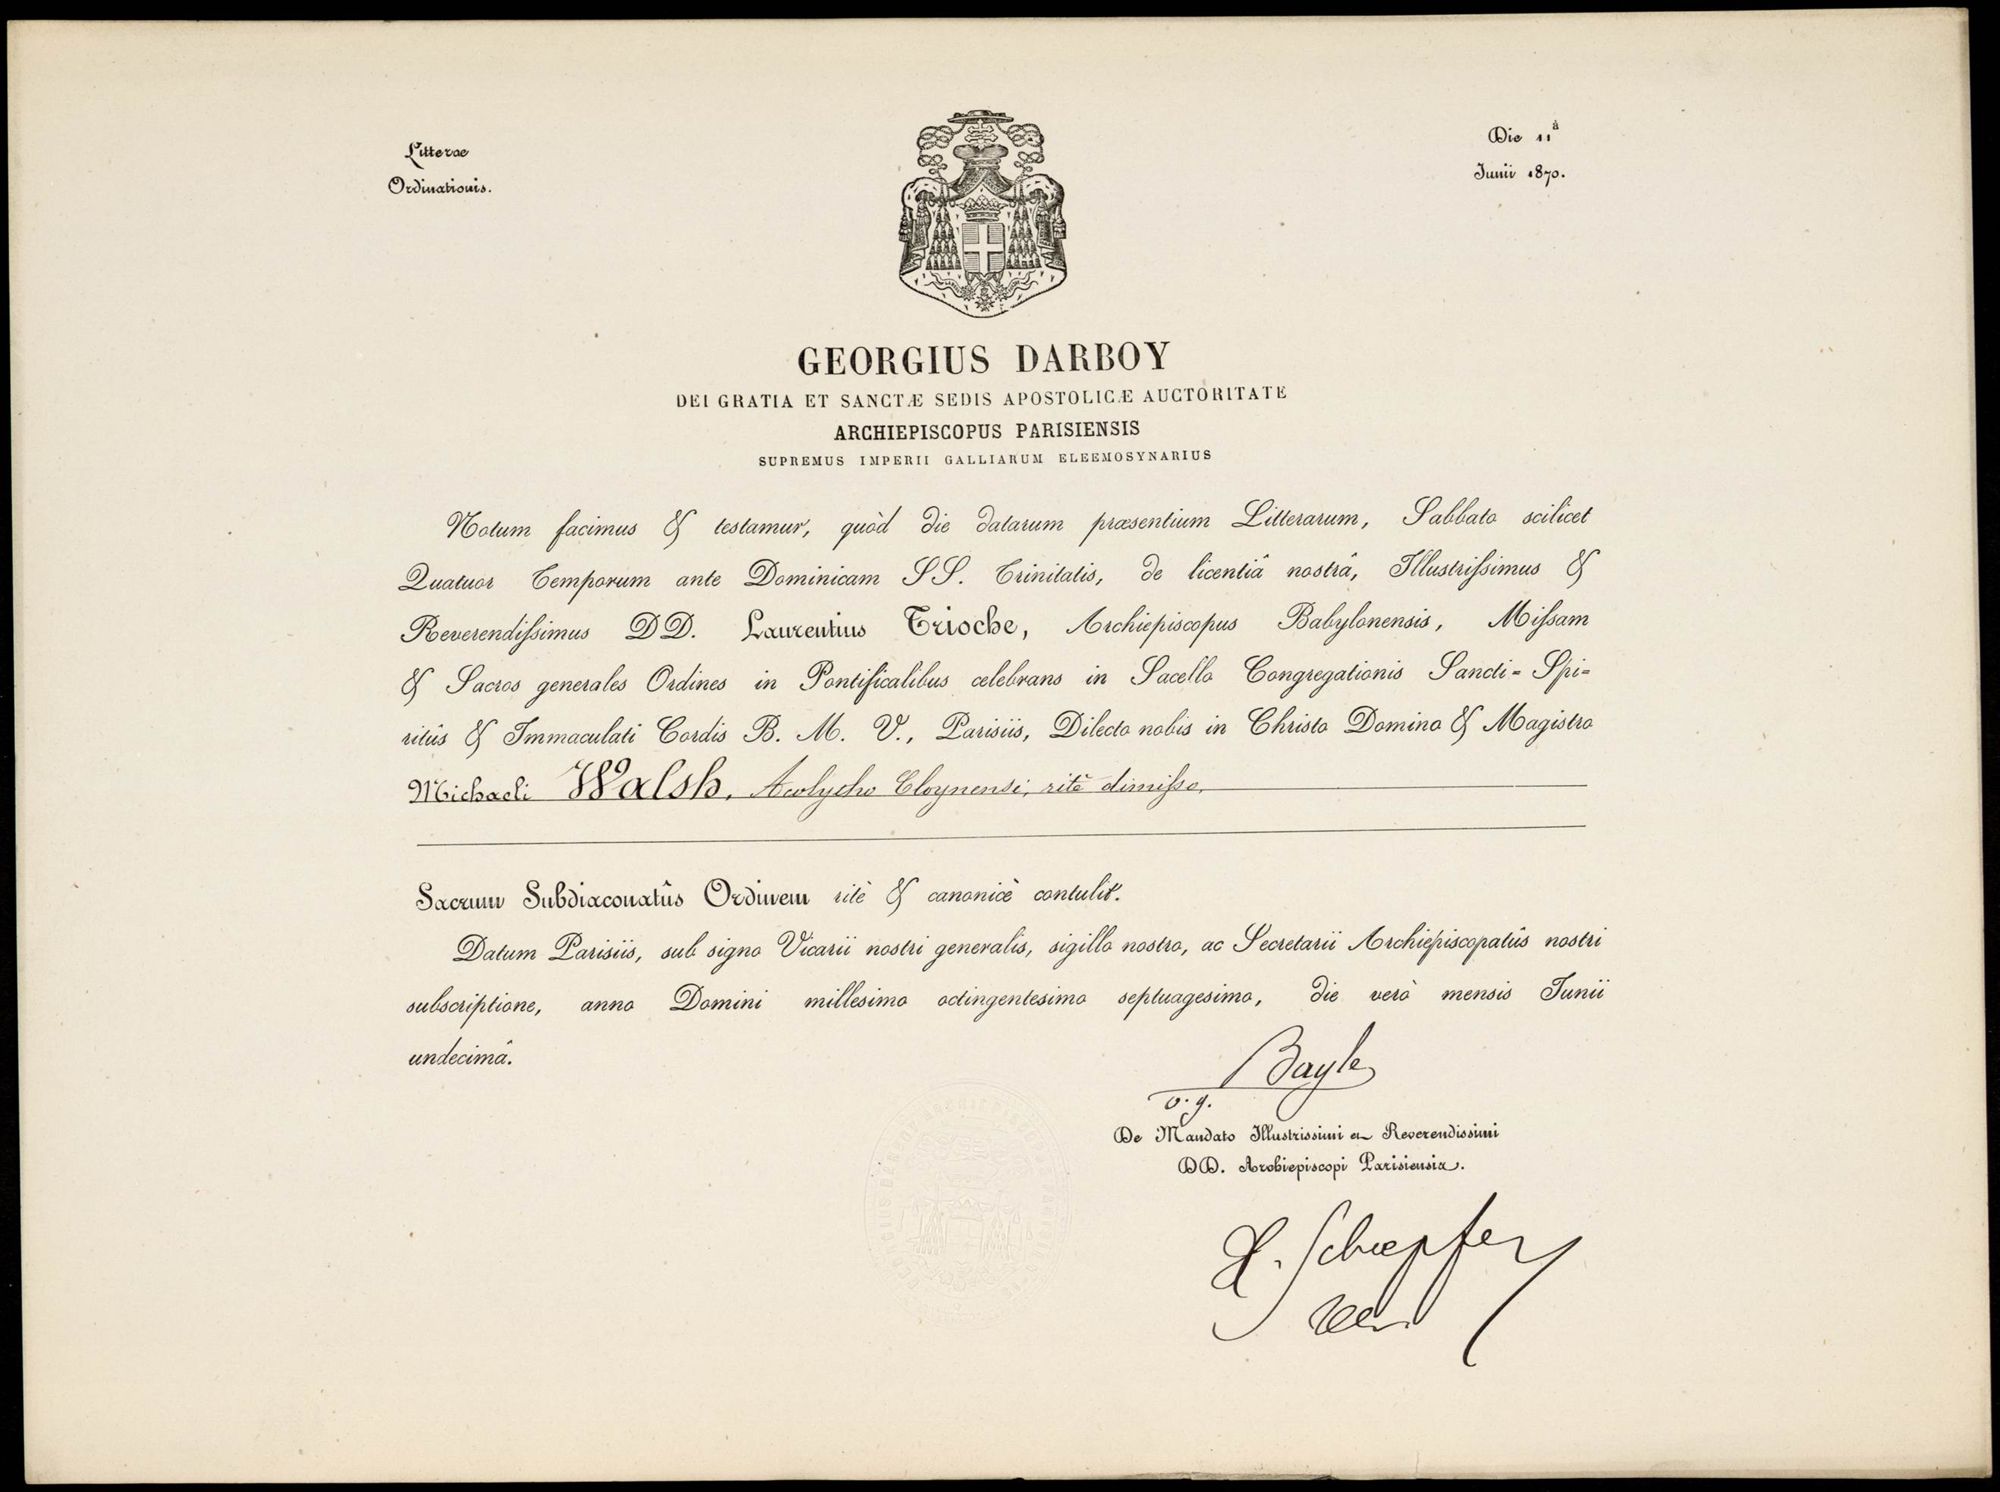 Litterae
Ordinationis.
Die 11ª
Junii 1870.
GEORGIUS DARBOY
DEI GRATIA ET SANCTÆ SEDIS APOSTOLICÆ AUCTORITATE
ARCHIEPISCOPUS PARISIENSIS
SUPREMUS IMPERII GALLIARUM ELEEMOSYNARIUS
Notum facimus & testamur, quòd die datarum præsentium Litterarum, Sabbato scilicet
Quatuor Temporum ante Dominicam SS. Trinitatis, de licentiâ nostrâ, Illustrissimus &
Reverendissimus DD. Laurentius Trioche, Archiepiscopus Babylonensis, Missam
& Sacros generales Ordines in Pontificalibus celebrans in Sacello Congregationis Sancti-Spi-
ritûs & Immaculati Cordis B. M. V., Parisiis, Dilecto nobis in Christo Domino & Magistro
Michaeli Walsh, Acolytho Cloynensi, ritè dimisso,
Sacrum Subdiaconatûs Ordinem ritè & canonicè contulit.
Datum Parisiis, sub signo Vicarii nostri generalis, sigillo nostro, ac Secretarii Archiepiscopatûs nostri
subscriptione, anno Domini millesimo octingentesimo septuagesimo, die verò mensis Junii
undecimâ.
Bayle
v. g.
De Mandato Illustrissimi et Reverendissimi
DD. Archiepiscopi Parisiensis.
Schœpfer